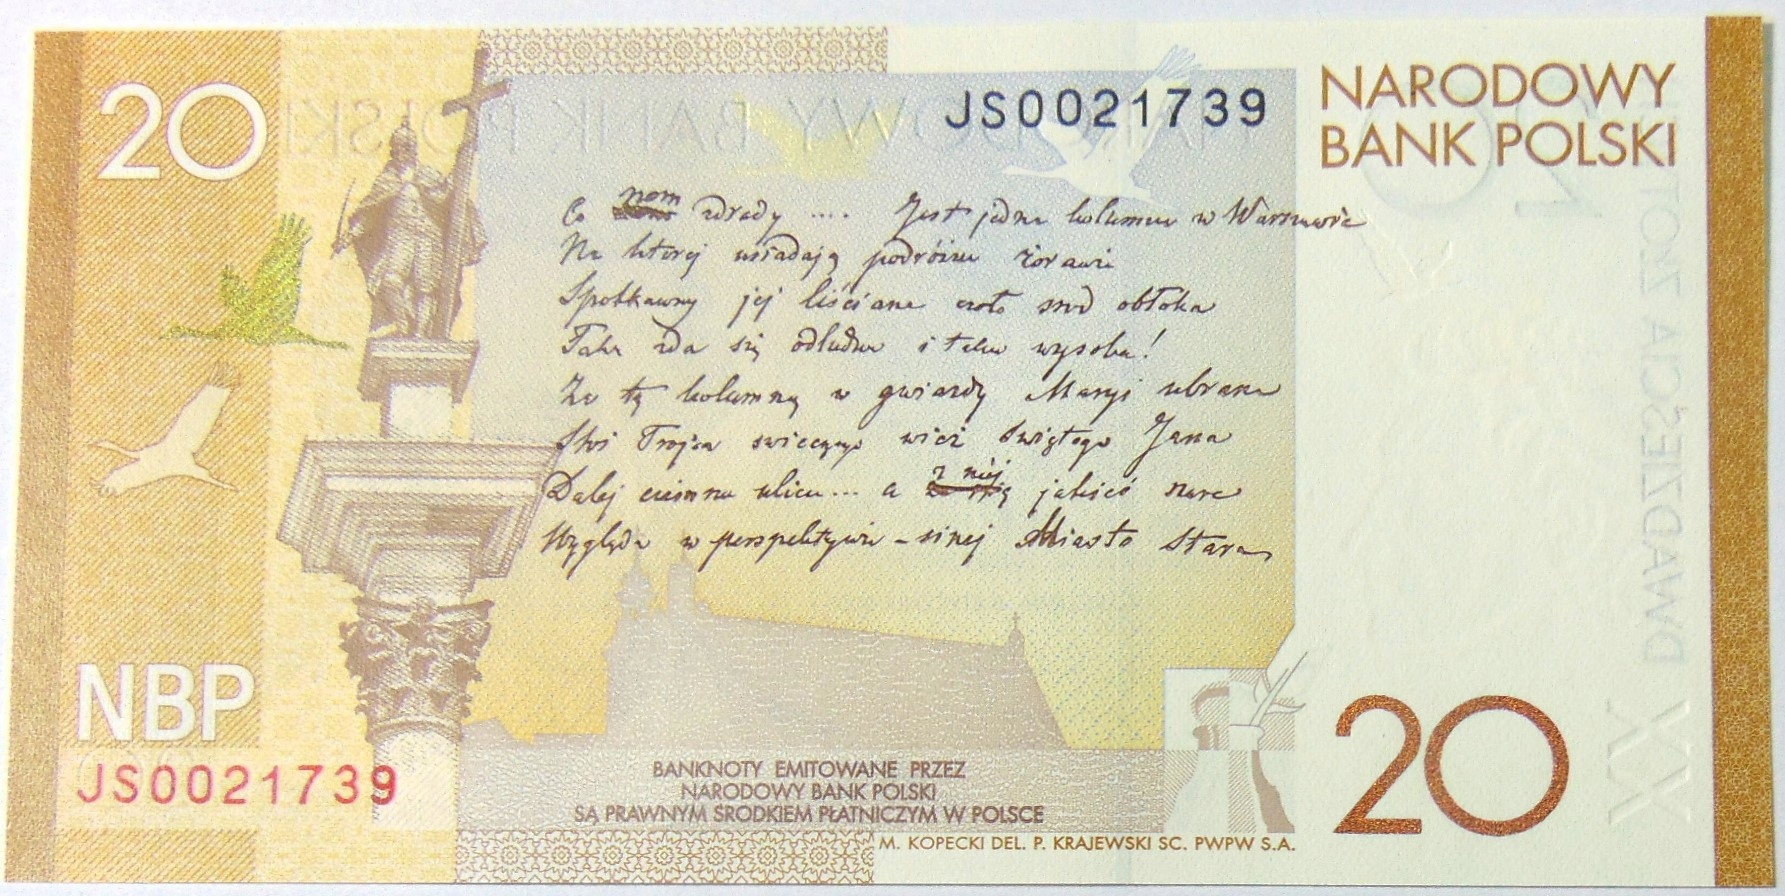 20
JS0021739
NARODOWY
BANK POLSKI
Co nom zdrady .... Jest jedna kolumna w Warszawie
Na ktorej usiadają podróżne żorawie
Spotkawszy jej liściane czoło srod obłoka
Taka zda się odludna i taka wysoka!
Za tą kolumną w gwiazdy Maryi ubrana
Stoi Trojca swiecących wież Świętego Jana
Dalej ciemna ulica... a z niéj jakieś szare
Wygląda w perspektywie - sinej Miasto Stare
NBP
JS0021739
BANKNOTY EMITOWANE PRZEZ
NARODOWY BANK POLSKI
SĄ PRAWNYM ŚRODKIEM PŁATNICZYM W POLSCE
M. KOPECKI DEL. P. KRAJEWSKI SC. PWPW S.A.
20